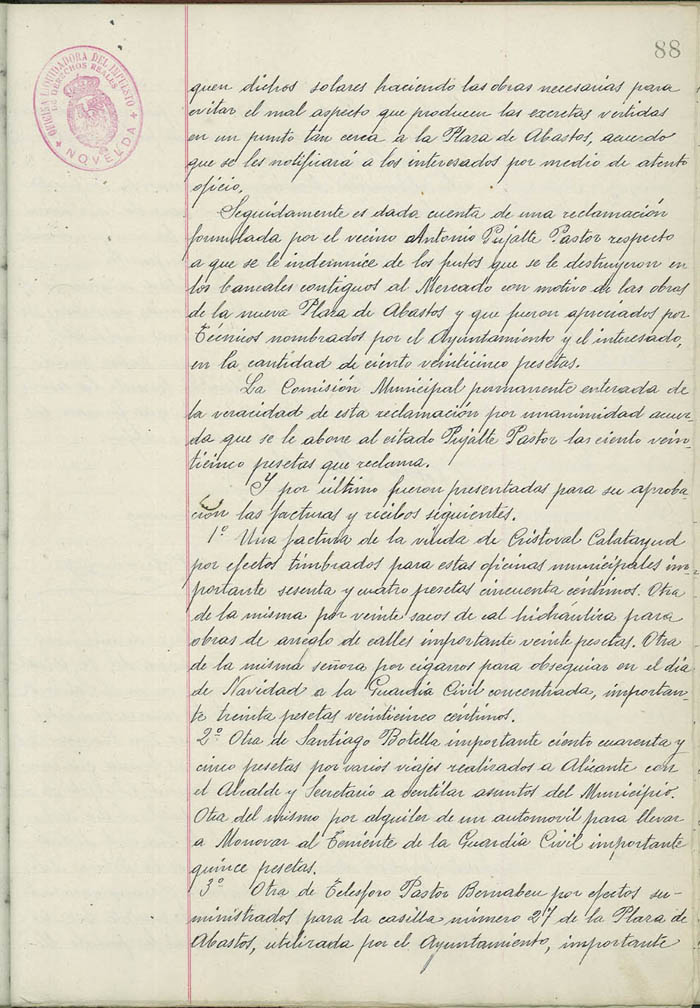 88
OFICINA LIQUIDADORA DEL IMPUESTO
DE DERECHOS REALES
NOVELDA
quen dichos solares haciendo las obras necesarias para
evitar el mal aspecto que producen las excretas vertidas
en un punto tán cerca a la Plaza de Abastos, acuerdo
que se les notificará a los interesados por medio de atento
oficio.
Seguidamente es dada cuenta de una reclamación
formulada por el vecino Antonio Pujalte Pastor respecto
a que se le indemnice de los frutos que se le destruyeron en
los bancales contiguos al Mercado con motivo de las obras
de la nueva Plaza de Abastos y que fueron apreciados por
Técnicos nombrados por el Ayuntamiento y el interesado,
en la cantidad de ciento veinticinco pesetas.
La Comisión Municipal permanente enterada de
la veracidad de esta reclamación por unanimidad acuer-
da que se le abone al citado Pujalte Pastor las ciento vein-
ticinco pesetas que reclama.
Y por último fueron presentadas para su aproba-
ción las facturas y recibos siguientes.
1º Una factura de la viuda de Cristoval Calatayud
por efectos timbrados para estas oficinas municipales im-
portante sesenta y cuatro pesetas cincuenta céntimos. Otra
de la misma por veinte sacos de cal hidráulica para
obras de arreglo de calles importante veinte pesetas. Otra
de la misma señora por cigarros para obsequiar en el dia
de Navidad a la Guardia Civil concentrada, importan-
te treinta pesetas veinticinco céntimos.
2º Otra de Santiago Botella importante ciento cuarenta y
cinco pesetas por varios viajes realizados a Alicante con
el Alcalde y Secretario a ventilar asuntos del Municipio.
Otra del mismo por alquiler de un automovil para llevar
a Monovar al Teniente de la Guardia Civil importante
quince pesetas.
3º Otra de Telesforo Pastor Bernabeu por efectos su-
ministrados para la casilla número 27 de la Plaza de
Abastos, utilizada por el Ayuntamiento, importante